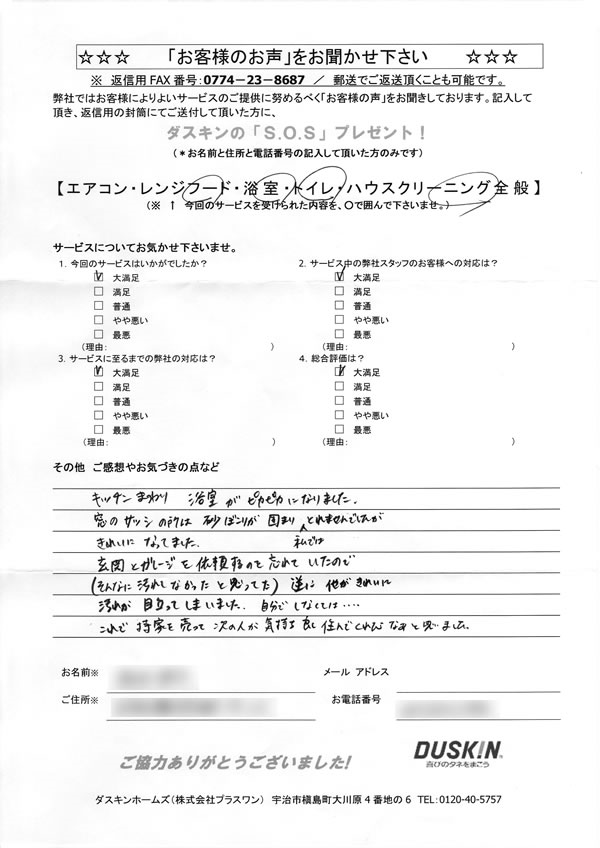 ☆☆☆ 「お客様のお声」をお聞かせ下さい ☆☆☆
※ 返信用FAX番号:0774-23-8687 ／ 郵送でご返送頂くことも可能です。
弊社ではお客様によりよいサービスのご提供に努めるべく「お客様の声」をお聞きしております。記入して
頂き、返信用の封筒にてご送付して頂いた方に、
ダスキンの「S.O.S」プレゼント！
(＊お名前と住所と電話番号の記入して頂いた方のみです)
【エアコン・レンジフード・浴室・トイレ・ハウスクリーニング全般】
(※ ↑ 今回のサービスを受けられた内容を、〇で囲んで下さいませ。)
サービスについてお気かせ下さいませ。
1. 今回のサービスはいかがでしたか？
大満足
満足
普通
やや悪い
最悪
(理由: )
2. サービス中の弊社スタッフのお客様への対応は？
大満足
満足
普通
やや悪い
最悪
(理由: )
3. サービスに至るまでの弊社の対応は？
大満足
満足
普通
やや悪い
最悪
(理由: )
4. 総合評価は？
大満足
満足
普通
やや悪い
最悪
(理由: )
その他 ご感想やお気づきの点など
キッチンまわり 浴室がピカピカになりました.
窓のサッシの所は 砂ぼこりが固まり とれませんでしたが
きれいになってました. 私では
玄関とガレージを依頼するのを忘れていたので
(そんなに汚れてなかったと思ってた) 逆に 他がきれいに
汚れが目立ってしまいました. 自分でしなくては….
これで 持家を売って 次の人が気持ち良く住んでくれるなあと思いました.
お名前※
メール アドレス
ご住所※
お電話番号
ご協力ありがとうございました!
DUSKIN
喜びのタネをまこう
ダスキンホームズ(株式会社プラスワン) 宇治市槇島町大川原4番地の6 TEL:0120-40-5757